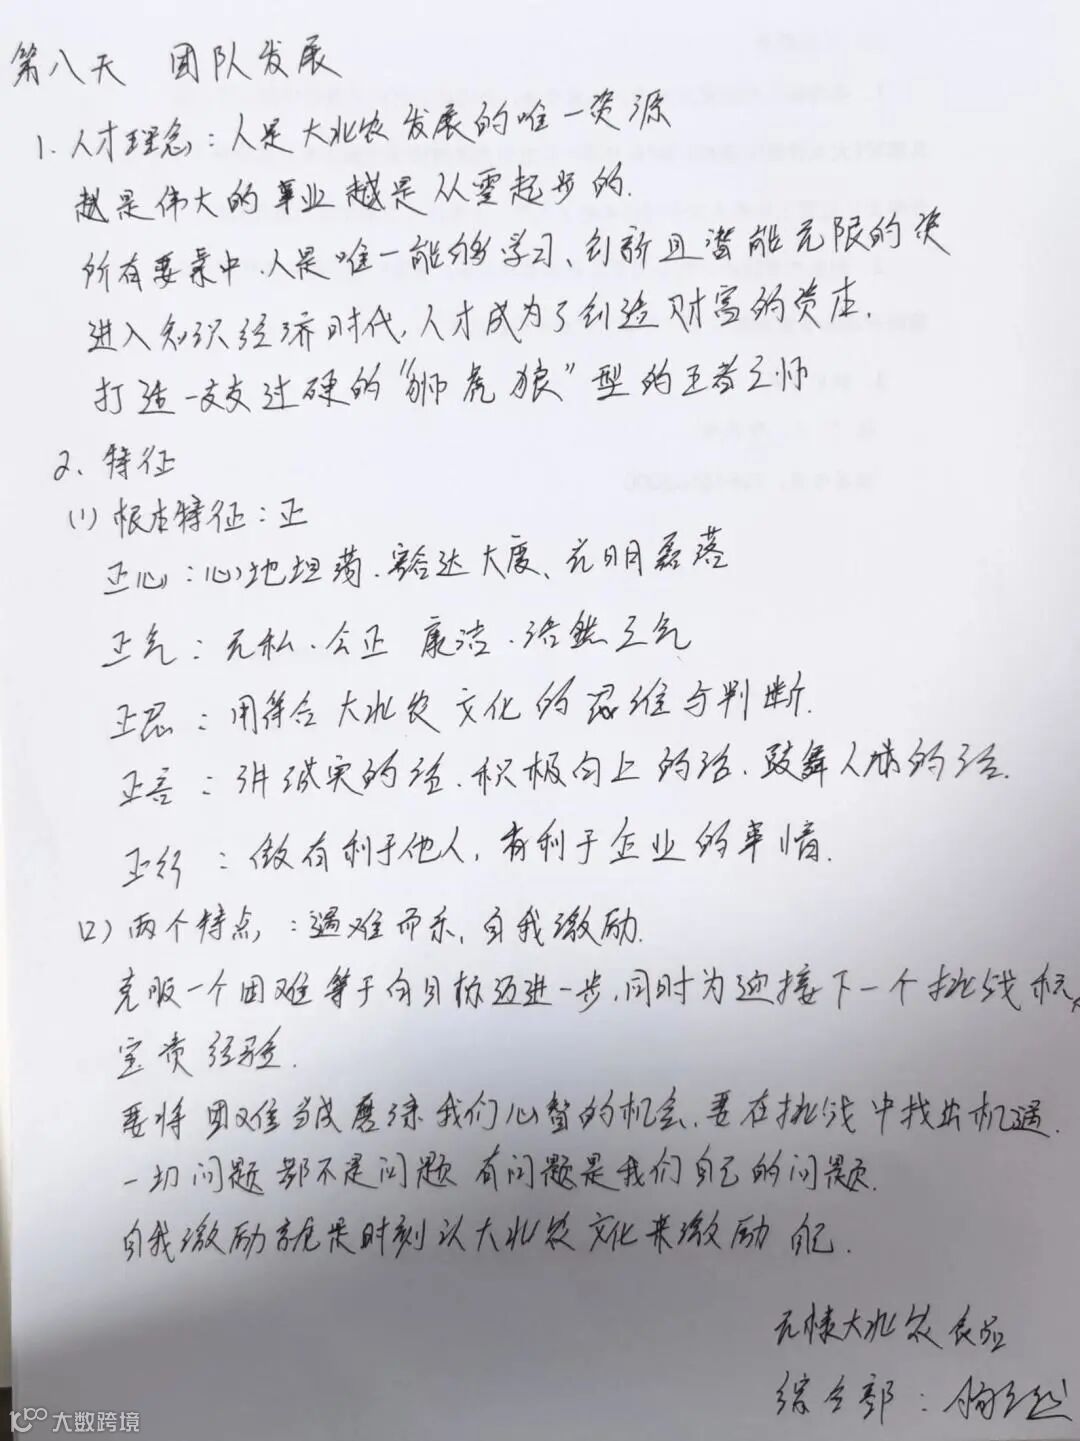 第八天 团队发展
1. 人才理念：人是大北农发展的唯一资源
越是伟大的事业越是从零起步的.
所有要素中.人是唯一能够学习、创新且潜能无限的资
进入知识经济时代,人才成为了创造财富的资本.
打造一支支过硬的"狮虎狼"型的王者之师
2、特征
(1) 根本特征：正
正心：心地坦荡.豁达大度、光明磊落
正气：无私.公正 廉洁.浩然正气
正思：用符合大北农文化的思维与判断.
正言：讲诚实的话.积极向上的话.鼓舞人情的话.
正行：做有利于他人,有利于企业的事情.
(2) 两个特点：遇难而乐,自我激励.
克服一个困难等于向目标迈进一步,同时为迎接下一个挑战积
宝贵经验.
要将困难当成磨练我们心智的机会.要在挑战中找出机遇.
一切问题都不是问题 有问题是我们自己的问题.
自我激励就是时刻以大北农文化来激励自己.
无棣大北农食品
综合部：
大数跨境